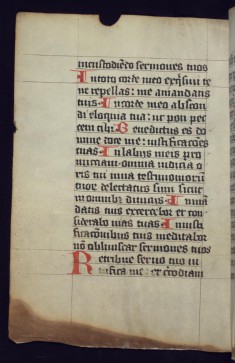 in custodiẽdo sermones tuos
In toto corde meo exq̃siui te
ne repellas: me a mandatis
tuis In corde meo abscon
di eloquia tua: ut non pec
cem tibi Benedictus es do
mine doce me: iustificac̃oes
tuas In labijs meis pro
nunciaui omnia iudicia o
ris tui In uia testimoniorũ
tuor delectatus sum sicut
in omnibꝫ diuicijs In man
datis tuis exercebor et con
siderabo uias tuas In iusti
ficac̃onibus tuis meditabor
nõ obliuiscar sermones tuos
Retribue seruo tuo ui
uifica me: et custodiam